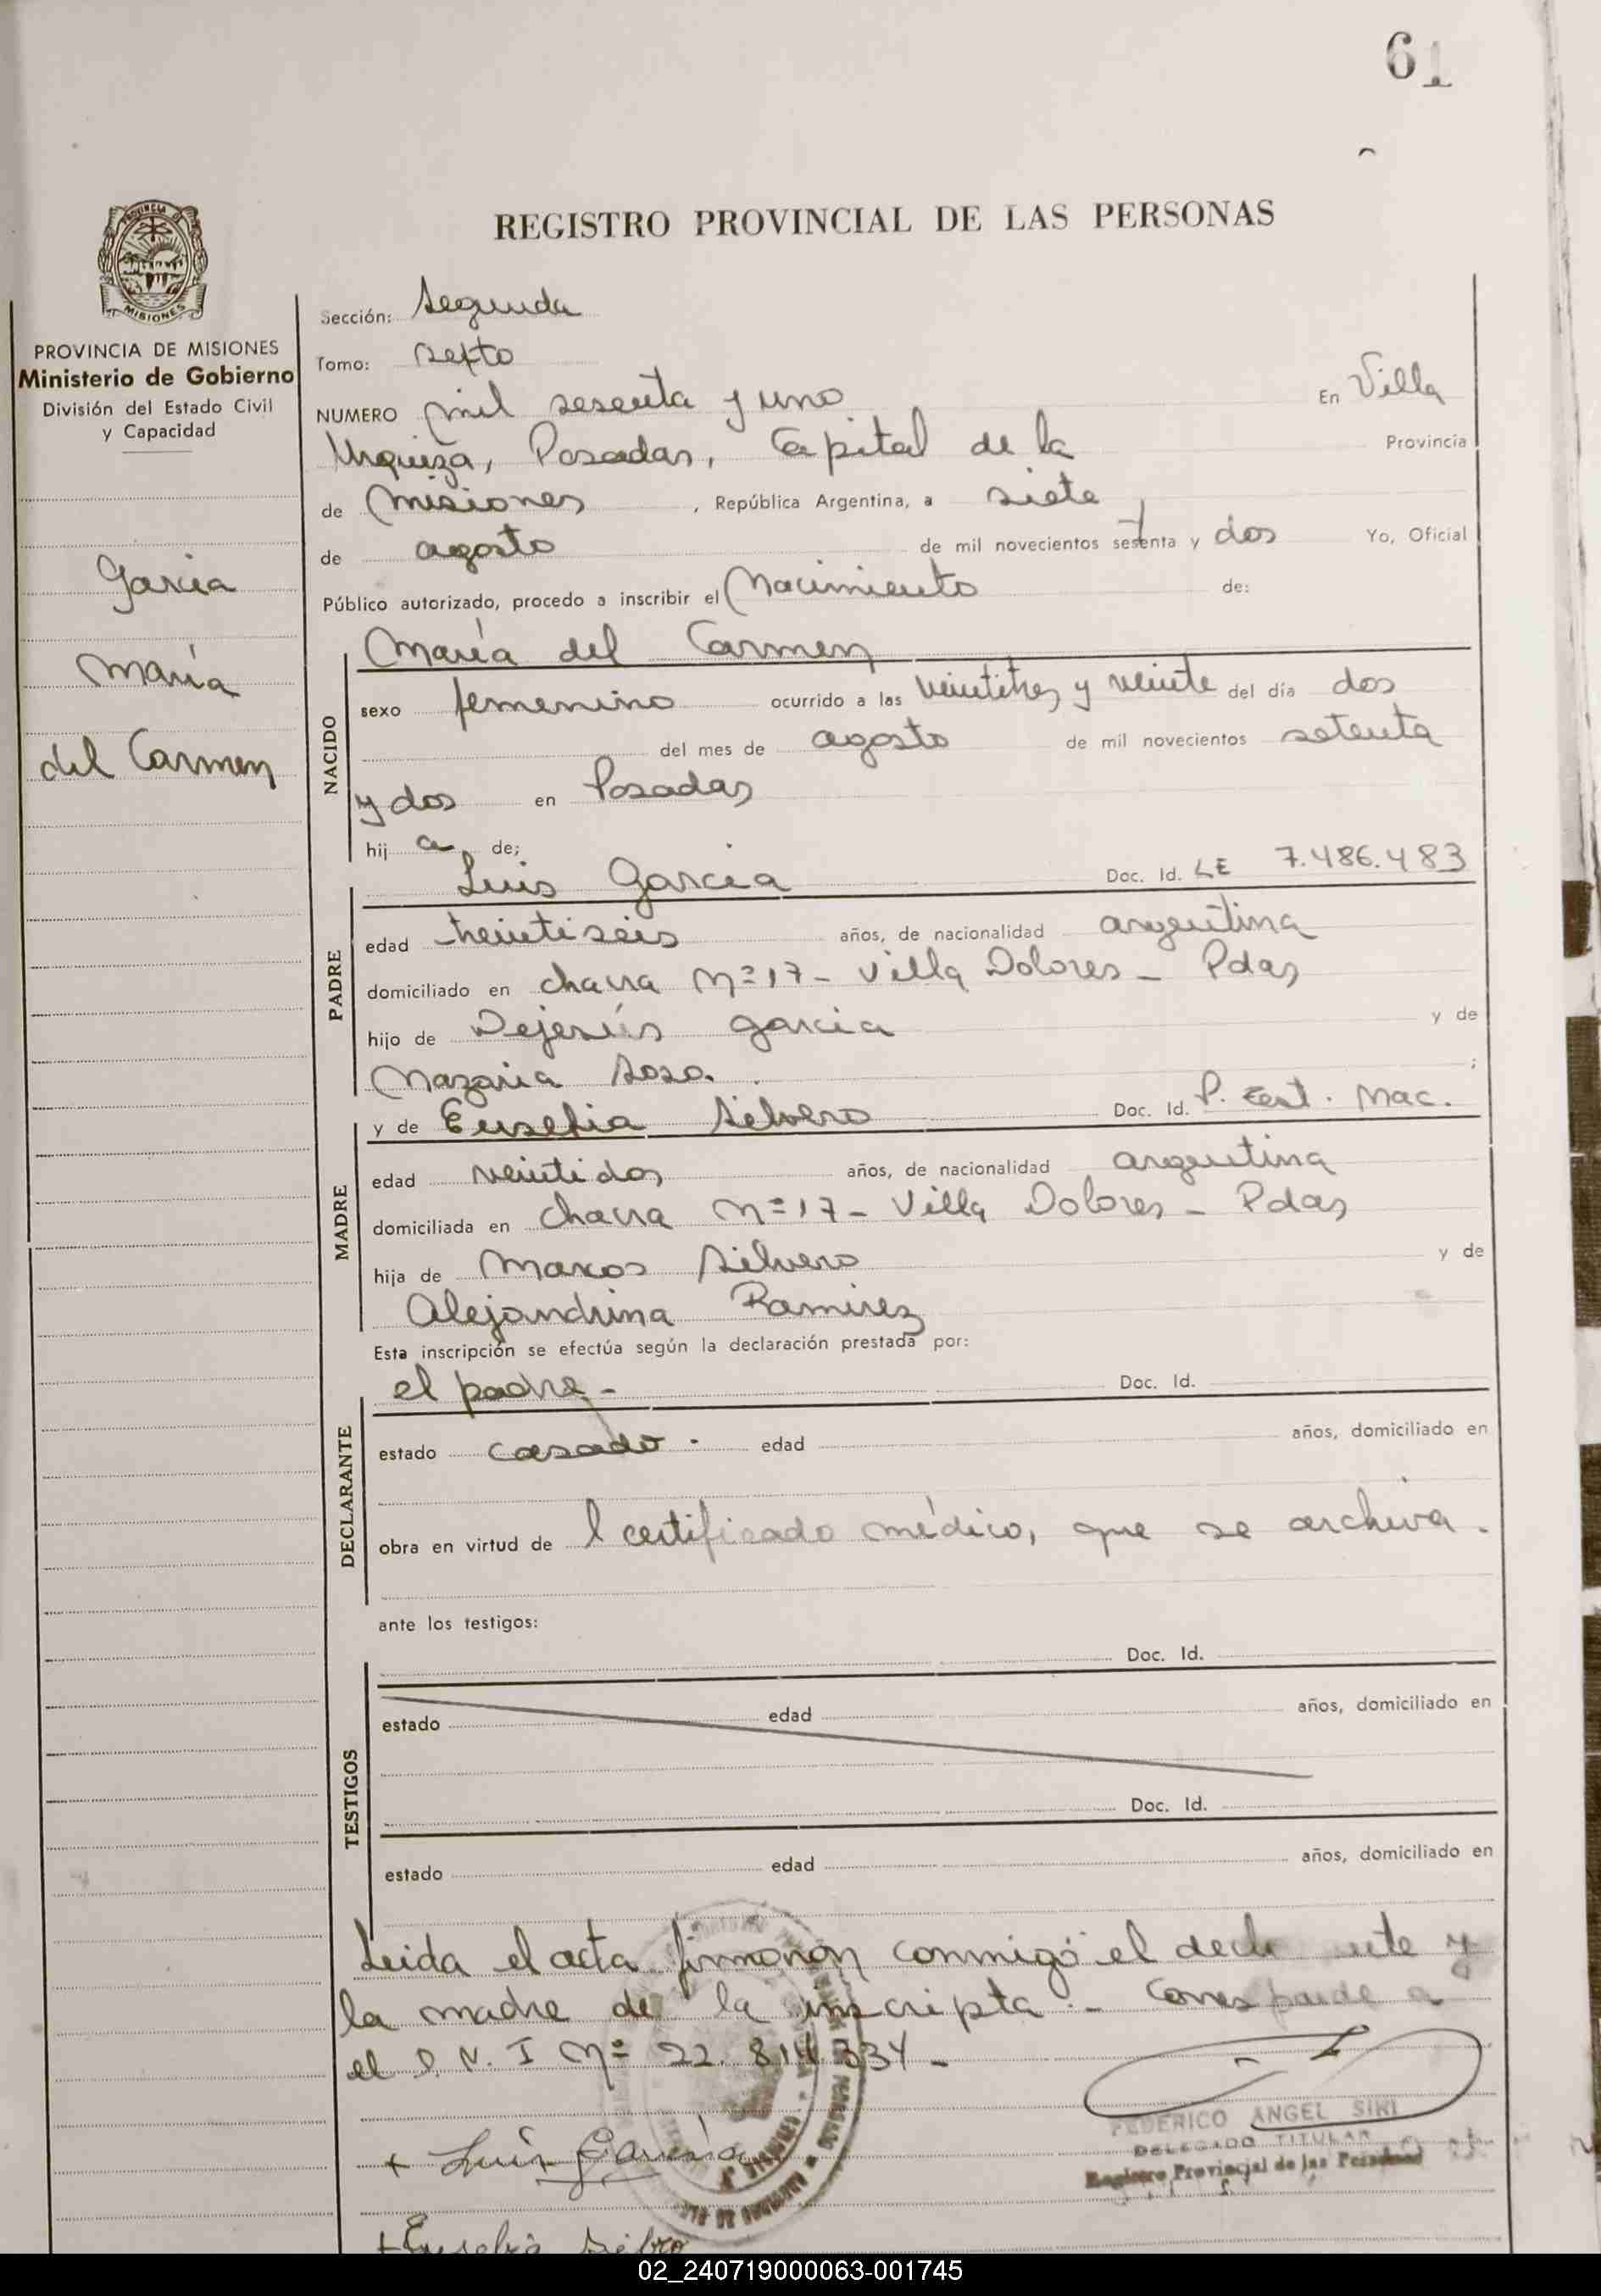 61
REGISTRO PROVINCIAL DE LAS PERSONAS
PROVINCIA DE MISIONES
Ministerio de Gobierno
División del Estado Civil
y Capacidad
Garcia
María
del Carmen
Sección: Segunda
Tomo: Sexto
NUMERO mil sesenta y uno En Villa
Urquiza, Posadas, Capital de la Provincia
de Misiones, República Argentina, a siete
de agosto de mil novecientos setenta y dos Yo, Oficial
Público autorizado, procedo a inscribir el Nacimiento de:
NACIDO
María del Carmen
sexo femenino ocurrido a las veintitres y veinte del día dos
del mes de agosto de mil novecientos setenta
y dos en Posadas
hij a de;
PADRE
Luis Garcia Doc. Id. LE 7.486.483
edad treintiseis años, de nacionalidad argentina
domiciliado en chacra Nº 17 - Villa Dolores - Pdas
hijo de Dejesús Garcia y de
Nazaria Sosa. ;
MADRE
y de Eusebia Silvero Doc. Id. P. Cert. Nac.
edad veintidos años, de nacionalidad argentina
domiciliada en chacra Nº 17 - Villa Dolores - Pdas
hija de Marcos Silvero y de
Alejandrina Ramirez
Esta inscripción se efectúa según la declaración prestada por:
DECLARANTE
el padre - Doc. Id.
estado casado. edad años, domiciliado en
obra en virtud de l certificado médico, que se archiva.
ante los testigos:
TESTIGOS
Doc. Id.
estado edad años, domiciliado en
Doc. Id.
estado edad años, domiciliado en
Leida el acta firmaron conmigo el declarante y
la madre de la inscripta.- Corresponde a
el D.N.I Nº 22.814.334 -
+ Luis Garcia
FEDERICO ANGEL SIRI
DELEGADO TITULAR
Registro Provincial de las Personas
+ Eusebia
02_240719000063-001745